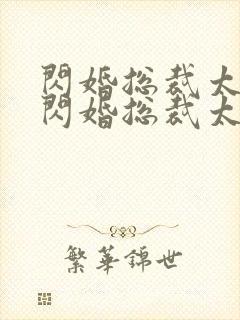 閃婚総裁太
閃婚総裁太
繁華錦世